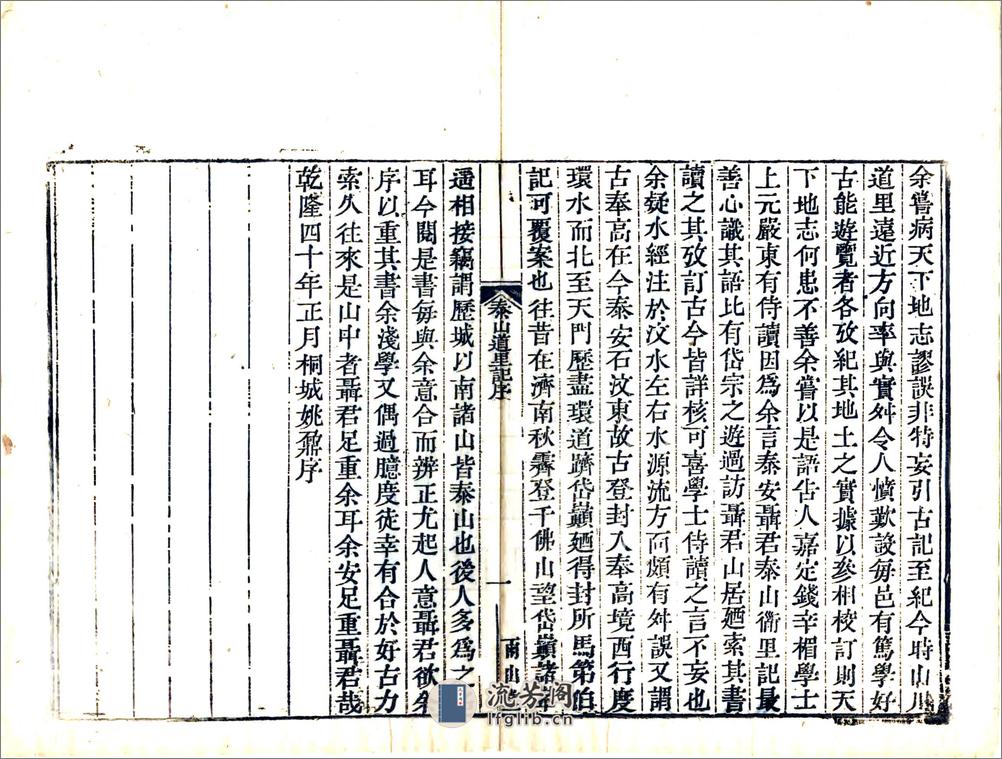 余嘗病天下地志謬誤非特妄引古記至紀今時山川
道里遠近方向率與實舛令人憤歎設每邑有篤學好
古能遊覽者各攷紀其地土之實據以參相校訂則天
下地志何患不善余嘗以是語告人嘉定錢辛楣學士
上元嚴東有侍讀因爲余言泰安聶君泰山衜里記最
善心識其語比有岱宗之遊過訪聶君山居廼索其書
讀之其攷訂古今皆詳核可喜學士侍讀之言不妄也
余疑水經注於汶水左右水源流方向頗有舛誤又謂
古奉高在今泰安石汶東故古登封入奉高境西行度
環水而北至天門歷盡環道躋岱巔廼得封所馬第伯
記可覆案也往昔在濟南秋霽登千佛山望岱巔諸峯
泰山道里記序
一
雨山
遥相接竊謂歷城以南諸山皆泰山也後人多爲之
耳今閱是書每與余意合而辨正尤起人意聶君欲余
序以重其書余淺學又偶過臆度徒幸有合於好古力
索久往來是山中者聶君足重余耳余安足重聶君哉
乾隆四十年正月桐城姚鼐序
流芳阁
lfglib.cn